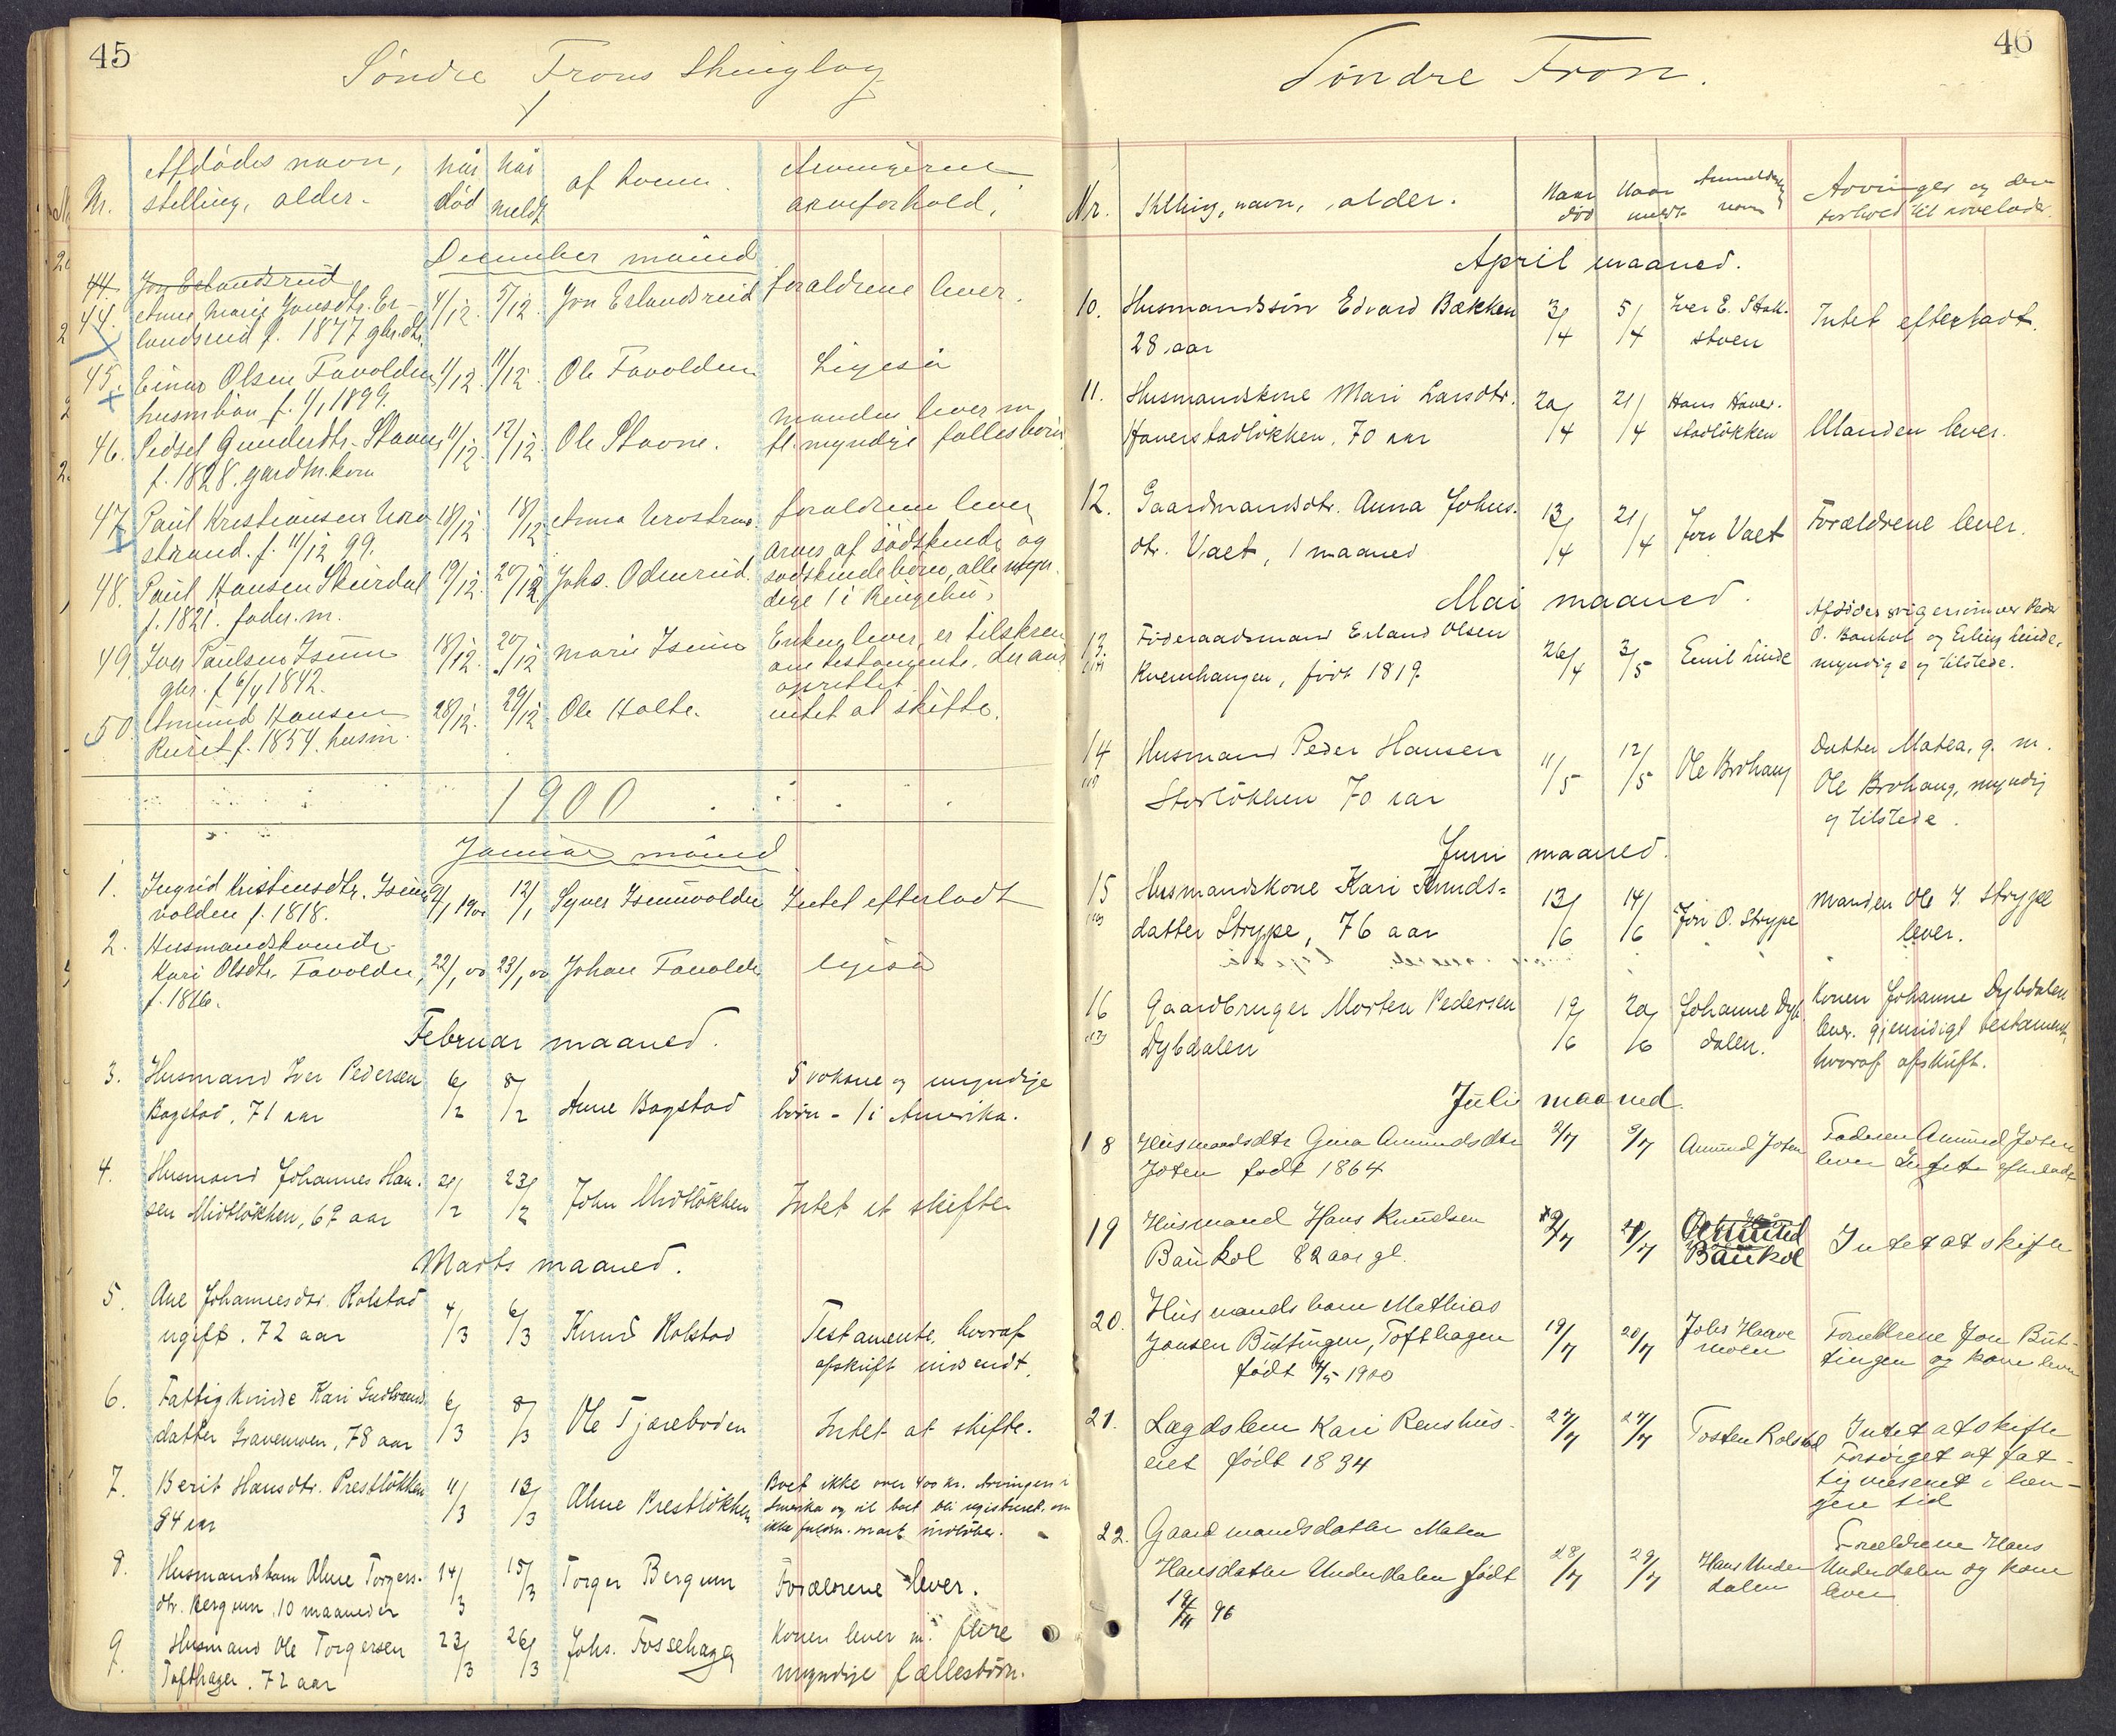 45
Søndre Frons thinglag
Nr.
Afdødes navn,
stilling, alder.
når
død
når
meldt
af hvem.
Arvingerne
arveforhold.
December månd
44. Jon Erlandsrud
44. Anne Marie Jonsdtr. Er-
landsrud f. 1877 gbr.dtr.
4/12. 5/12 Jon Erlandsrud forældrene lever.
45. Einar Olsen Favolden
husm.barn f. 1/1 1899.
11/12. Ole Favolden Ligeså
46. Sidsel Gundersdtr. Stavne
f. 1828. gårdm.kone
11/12. 12/12. Ole Stavne.
manden lever m.
fl. myndige fællesbörn
47 Paul Kristiansen Uro
strand. f. 11/12 99.
18/12 18/12 Anna Urostrand. forældrene lever
48. Paul Hansen Skurdal
f. 1821. føder.m.
19/12. 20/12 Johs. Odenrud.
arves af södskende og
södskendebörn, alle myn-
dige 1 i Ringebu.
49. Iver Paulsen Isum
gbr. f. 6/4 1842.
18/12. 20/12 Marie Isum
Enken lever, er tilskreven
om testamente,
oprettet
50. Amund Hansen
Ruret f. 1854. husm.
28/12. 29/12 Ole Holte. intet at skifte.
1900
Januar månd
1. Ingrid Kristensdtr. Isum
volden f. 1818.
9/1 1900 12/1 Syver Isumvolden Intet efterladt
2. Husmandskvinde
Kari Olsdtr. Favolden,
f. 1816.
22/1 00 23/1 00 Johan Favolden ligeså
Februar maaned.
3. Husmand Iver Pedersen
Bagstad, 71 aar
6/2 8/2 Anne Bagstad
5 voksne og myndige
börn - 1 i Amerika.
4. Husmand Johannes Han-
sen Midtlökken, 69 aar
21/2 23/2 John Midtlökken Intet at skifte
Marts maaned.
5. Ane Johannesdtr. Rolstad
ugift. 72 aar
4/3 6/3 Knud Rolstad
Testamente, hvoraf
afskrift indsendt.
6. Fattigkvinde Kari Gudbrands
datter Gravenmoen, 78 aar
6/3 8/3 Ole Tjæreboden Intet at skifte.
7. Berit Hansdtr. Prestlökken
84 aar
11/3 13/3 Anne Prestlökken
Boet ikke over 400 kr. Arvingen i
Amerika og vil boet bli registreret om
ikke fuldm. snart indløber.
8. Husmandsbarn Anne Torgers-
dtr. Bergum, 10 maaneder
14/3 15/3 Torger Bergum Forældrene lever.
9. Husmand Ole Torgersen
Tofthagen. 72 aar
23/3 26/3 Johs. Fossehagen
Konen lever m. flere
myndige fællesbörn.
46
Søndre Fron.
Nr. Stilling, navn, alder.
Naar
död
Naar
meldt
Anmelderens
navn
Arvinger og deres
forhold til arvelader.
April maaned.
10. Husmandssön Edvard Bækken
28 aar
3/4 5/4 Iver E. Stok-
stuen
Intet efterladt.
11. Husmandskone Mari Larsdtr.
Haverstadlökken, 70 aar
20/4 21/4 Hans Haver-
stadlökken
Manden lever.
12. Gaardmandsdtr. Anna Johns-
dtr. Vaet, 1 maaned
13/4 21/4 John Vaet Forældrene lever.
Mai maaned.
13. Föderaadsmand Erland Olsen
Kvernhaugen, född 1819.
26/4 3/5 Emil Linde
Afdødes svigersönner Peder
O. Baukol og Erling Linde,
myndige og tilstede.
14 Husmand Peder Hansen
Storlökken 70 aar
11/5 12/5 Ole Brohaug
Datter Matea, g. m.
Ole Brohaug, myndig
og tilstede.
Juni maaned.
15 Husmandskone Kari Knuds-
datter Strype, 76 aar
13/6 14/6 Jon O. Strype
Manden Ole J. Strype
lever.
16 Gaardbruger Morten Pedersen
Dybdalen
19/6 20/6 Johanne Dyb-
dalen.
Konen Johanne Dybdalen
lever. Gjensidigt testamente,
hvoraf afskrift.
Juli maaned.
18 Husmandsdtr Gina Amundsdtr
Joten født 1864
2/7 9/7 Amund Joten
Faderen Amund Joten
lever Intet efterladt
19 Husmand Hans Knudsen
Baukol 82 aar gl.
21/7 Amund
Baukol
Intet at skifte
20. Husmandsbarn Mathias
Jonsen Buttingen, Tofthagen
født 4/5 1900
19/7 20/7 Johs Haave
moen
Forældrene Jon But-
tingen og kone lever
21. Lægdslem Kari Renshus-
eiet født 1834
27/7 27/7 Tosten Rolstad
Intet at skifte
Forsörget af fat-
tigvæsenet i læn-
gere tid
22. Gaardmandsdatter Matea
Hansdatter Underdalen født
96
28/7 29/7 Hans Under
dalen
Forældrene Hans
Underdalen og kone
lever